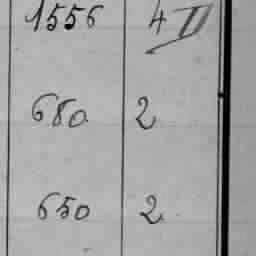 1556 4 II
680 2
650 2